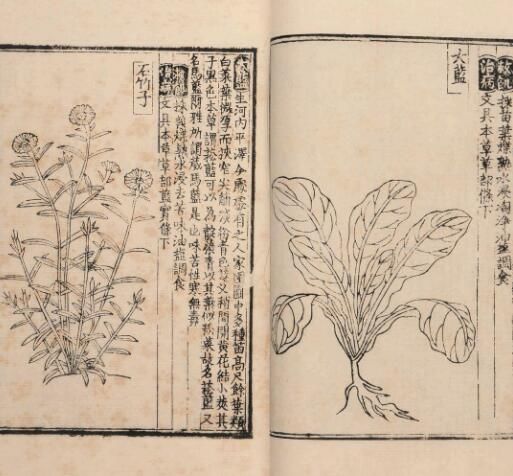 救飢 採苗葉煠熟水浸淘淨油鹽調食
治病 文具本草草部條下
大藍
大藍 生河內平澤今處處有之人家園圃中多種苗高尺餘葉類
白菜葉微厚而狹窄尖艄淡粉青色莖叉稍間開黃花結小莢其
子黑色本草謂菘藍可以為靛染青以其葉似菘菜故名菘藍又
名馬藍爾雅所謂葴馬藍是也味苦性寒無毒
救飢 採葉煠熟水浸去苦味油鹽調食
治病 文具本草草部藍實條下
石竹子